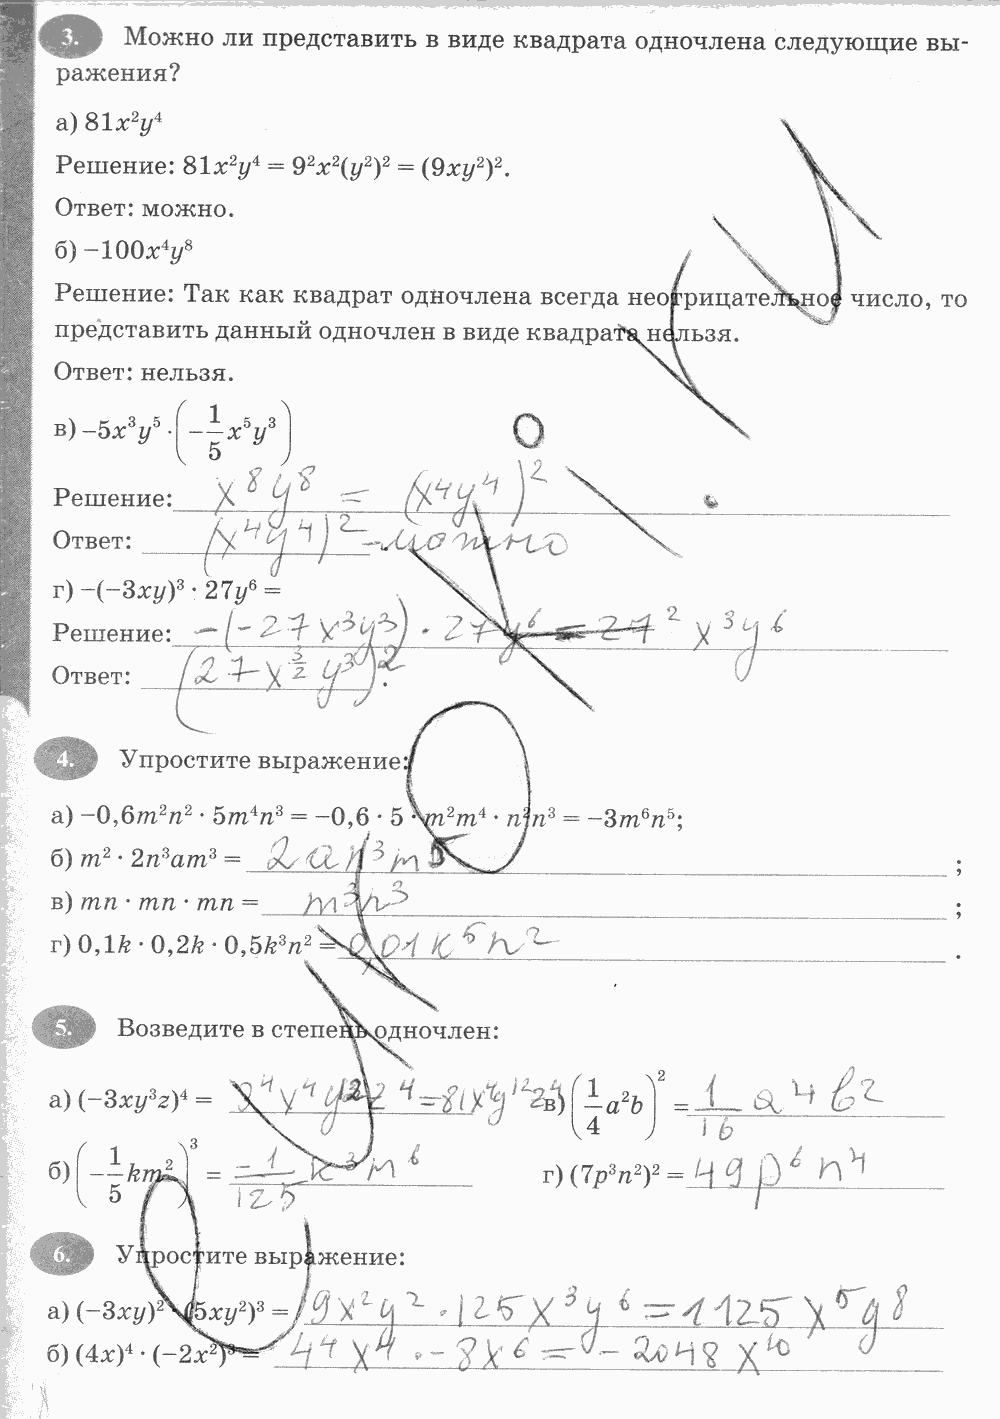 3. Можно ли представить в виде квадрата одночлена следующие вы-
ражения?
а) 81x²y⁴
Решение: 81x²y⁴ = 9²x²(y²)² = (9xy²)².
Ответ: можно.
б) −100x⁴y⁸
Решение: Так как квадрат одночлена всегда неотрицательное число, то
представить данный одночлен в виде квадрата нельзя.
Ответ: нельзя.
в) −5x³y⁵ · (−1/5 x⁵y³)
Решение: x⁸y⁸ = (x⁴y⁴)²
Ответ: (x⁴y⁴)² – можно
г) −(−3xy)³ · 27y⁶ =
Решение: −(−27x³y³) · 27y⁶ = 27² x³y⁶
Ответ: (27x^(3/2) y³)².
4. Упростите выражение:
а) −0,6m²n² · 5m⁴n³ = −0,6 · 5 · m²m⁴ · n²n³ = −3m⁶n⁵;
б) m² · 2n³am³ = 2an³m⁵ ;
в) mn · mn · mn = m³n³ ;
г) 0,1k · 0,2k · 0,5k³n² = 0,01k⁵n² .
5. Возведите в степень одночлен:
а) (−3xy³z)⁴ = 3⁴x⁴y¹²z⁴ = 81x⁴y¹²z⁴ в) (1/4 a²b)² = 1/16 a⁴b²
б) (−1/5 km²)³ = −1/125 k³m⁶ г) (7p³n²)² = 49p⁶n⁴
6. Упростите выражение:
а) (−3xy)² · (5xy²)³ = 9x²y² · 125x³y⁶ = 1125x⁵y⁸
б) (4x)⁴ · (−2x²)³ = 4⁴x⁴ · −8x⁶ = −2048x¹⁰